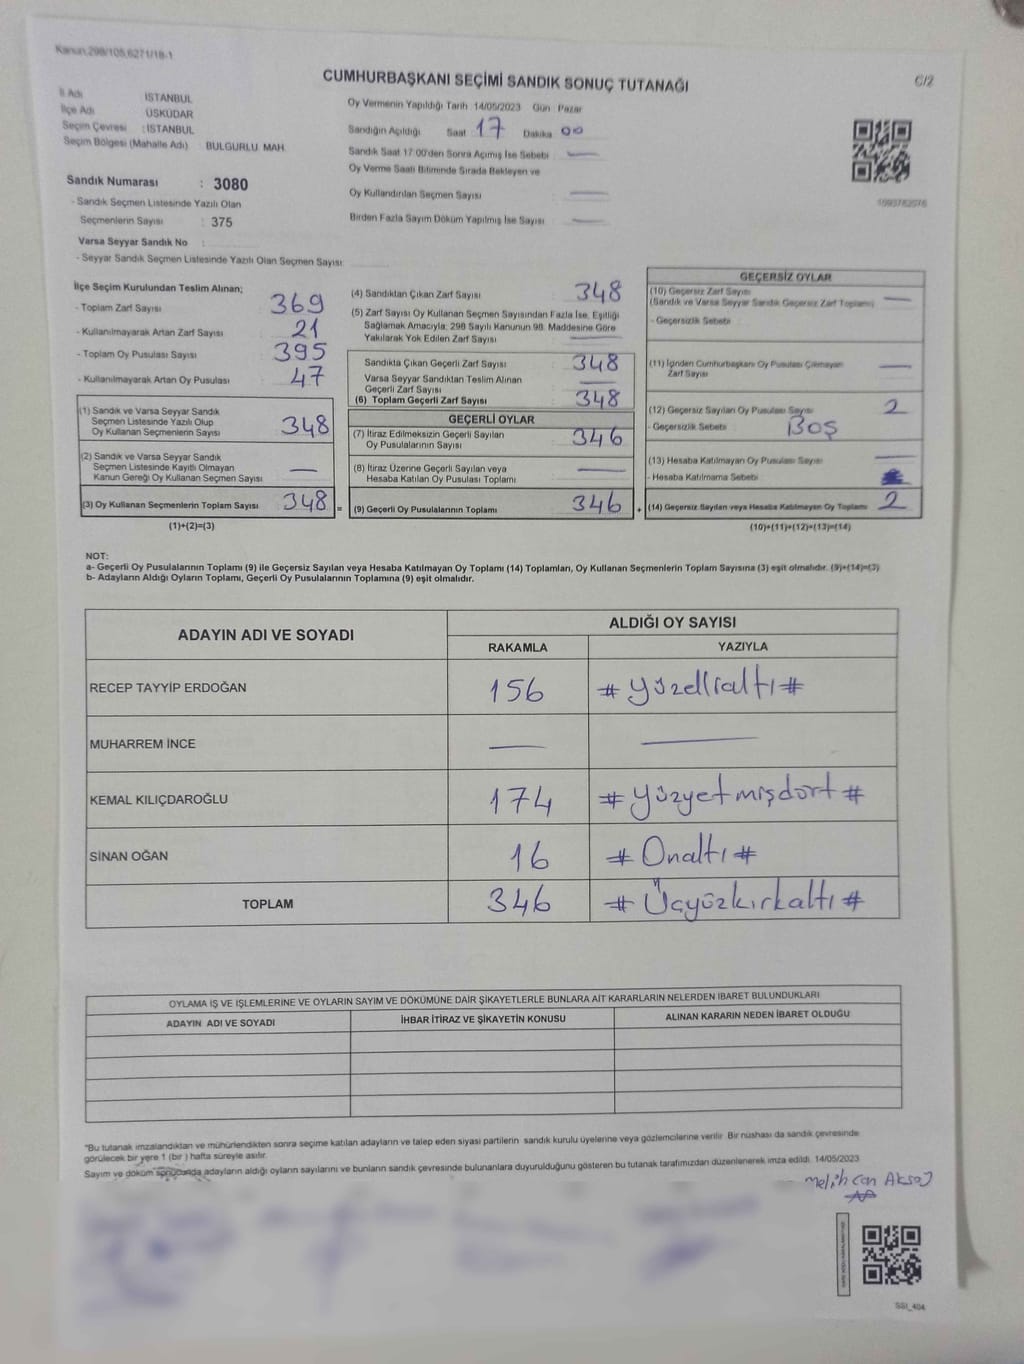 Kanun:298/105,6271/18-1
CUMHURBAŞKANI SEÇİMİ SANDIK SONUÇ TUTANAĞI
C/2
İl Adı İSTANBUL
İlçe Adı ÜSKÜDAR
Seçim Çevresi : İSTANBUL
Seçim Bölgesi (Mahalle Adı) BULGURLU MAH.
Sandık Numarası : 3080
- Sandık Seçmen Listesinde Yazılı Olan
Seçmenlerin Sayısı : 375
Varsa Seyyar Sandık No :
- Seyyar Sandık Seçmen Listesinde Yazılı Olan Seçmen Sayısı:
Oy Vermenin Yapıldığı Tarih 14/05/2023 Gün Pazar
Sandığın Açıldığı Saat 17 Dakika 00
Sandık Saat 17:00'den Sonra Açımış İse Sebebi
Oy Verme Saati Bitiminde Sırada Bekleyen ve
Oy Kullandırılan Seçmen Sayısı
Birden Fazla Sayım Döküm Yapılmış İse Sayısı
İlçe Seçim Kurulundan Teslim Alınan;
- Toplam Zarf Sayısı 369
- Kullanılmayarak Artan Zarf Sayısı 21
- Toplam Oy Pusulası Sayısı 395
- Kullanılmayarak Artan Oy Pusulası 47
(1) Sandık ve Varsa Seyyar Sandık
Seçmen Listesinde Yazılı Olup
Oy Kullanan Seçmenlerin Sayısı 348
(2) Sandık ve Varsa Seyyar Sandık
Seçmen Listesinde Kayıtlı Olmayan
Kanun Gereği Oy Kullanan Seçmen Sayısı —
(3) Oy Kullanan Seçmenlerin Toplam Sayısı 348 =
(1)+(2)=(3)
(4) Sandıktan Çıkan Zarf Sayısı 348
(5) Zarf Sayısı Oy Kullanan Seçmen Sayısından Fazla İse, Eşitliği
Sağlamak Amacıyla; 298 Sayılı Kanunun 98. Maddesine Göre
Yakılarak Yok Edilen Zarf Sayısı
Sandıkta Çıkan Geçerli Zarf Sayısı 348
Varsa Seyyar Sandıktan Teslim Alınan
Geçerli Zarf Sayısı —
(6) Toplam Geçerli Zarf Sayısı 348
GEÇERLİ OYLAR
(7) İtiraz Edilmeksizin Geçerli Sayılan
Oy Pusulalarının Sayısı 346
(8) İtiraz Üzerine Geçerli Sayılan veya
Hesaba Katılan Oy Pusulası Toplamı —
(9) Geçerli Oy Pusulalarının Toplamı 346 +
GEÇERSİZ OYLAR
(10) Geçersiz Zarf Sayısı
(Sandık ve Varsa Seyyar Sandık Geçersiz Zarf Toplamı) —
- Geçersizlik Sebebi :
(11) İçinden Cumhurbaşkanı Oy Pusulası Çıkmayan
Zarf Sayısı —
(12) Geçersiz Sayılan Oy Pusulası Sayısı 2
- Geçersizlik Sebebi : Boş
(13) Hesaba Katılmayan Oy Pusulası Sayısı —
- Hesaba Katılmama Sebebi
(14) Geçersiz Sayılan veya Hesaba Katılmayan Oy Toplamı 2
(10)+(11)+(12)+(13)=(14)
NOT:
a- Geçerli Oy Pusulalarının Toplamı (9) ile Geçersiz Sayılan veya Hesaba Katılmayan Oy Toplamı (14) Toplamları, Oy Kullanan Seçmenlerin Toplam Sayısına (3) eşit olmalıdır. (9)+(14)=(3)
b- Adayların Aldığı Oyların Toplamı, Geçerli Oy Pusulalarının Toplamına (9) eşit olmalıdır.
ADAYIN ADI VE SOYADI ALDIĞI OY SAYISI
RAKAMLA YAZIYLA
RECEP TAYYİP ERDOĞAN 156 # Yüzellialtı #
MUHARREM İNCE — —
KEMAL KILIÇDAROĞLU 174 # Yüzyetmişdört #
SİNAN OĞAN 16 # Onaltı #
TOPLAM 346 # Üçyüzkırkaltı #
OYLAMA İŞ VE İŞLEMLERİNE VE OYLARIN SAYIM VE DÖKÜMÜNE DAİR ŞİKAYETLERLE BUNLARA AİT KARARLARIN NELERDEN İBARET BULUNDUKLARI
ADAYIN ADI VE SOYADI İHBAR İTİRAZ VE ŞİKAYETİN KONUSU ALINAN KARARIN NEDEN İBARET OLDUĞU
"Bu tutanak imzalandıktan ve mühürlendikten sonra seçime katılan adayların ve talep eden siyasi partilerin sandık kurulu üyelerine veya gözlemcilerine verilir. Bir nüshası da sandık çevresinde
görülecek bir yere 1 (bir) hafta süreyle asılır.
Sayım ve döküm sonucunda adayların aldığı oyların sayılarını ve bunların sandık çevresinde bulunanlara duyurulduğunu gösteren bu tutanak tarafımızdan düzenlenerek imza edildi. 14/05/2023
Melih Can Aksoy
SSI_404